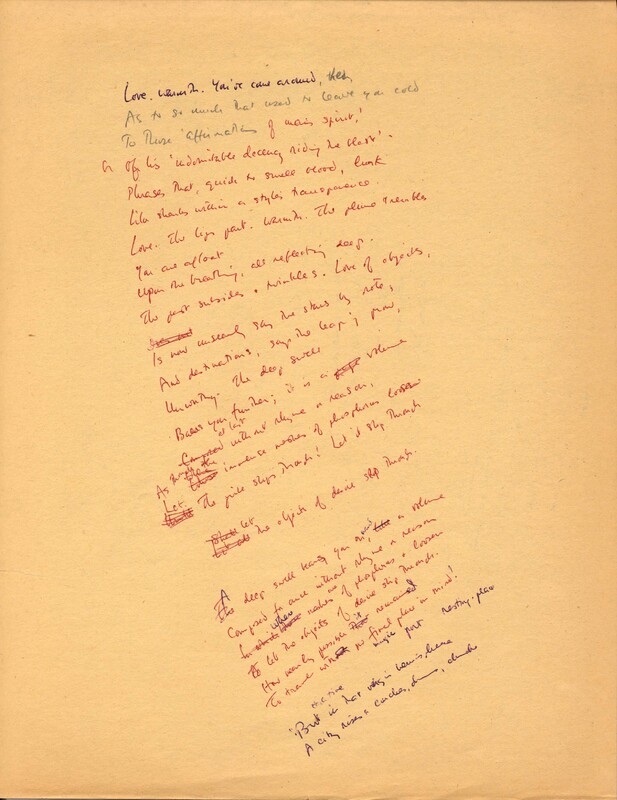 Love. Warmth. You've come around, then,
As to so much that used to leave you cold
To those 'affirmations of man's spirit,'
Or of his 'indomitable decency riding the blast' -
Phrases that, quick to smell blood, lurk
Like sharks within a style's transparence.
Love. The lips part. Warmth. The plume trembles
You are afloat
Upon the breathing, all reflecting deep.
The past subsides & twinkles. Love of objects,
Is now unseemly say the stars by rote,
And destinations, says the leaping prow,
Unworthy. The deep swell
Bears you further; it is a volume
at last
Composed without rhyme or reason,
As through the immense meshes of phosphorus loosen
Let The juice slips through! Let it slip through
let the objects of desire slip through.
A deep swell bears you on, a volume
Composed at once without rhyme or reason
where meshes of phosphorus loosen
To let the objects of desire slip through.
How nearly possible it remained
To travel with no final place in mind!
magic port resting-place
the nine
'But in hac virgin
A city rises